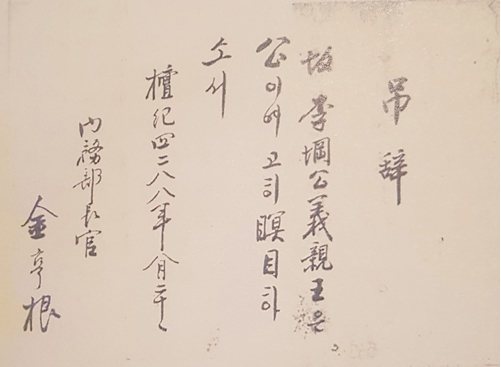 吊辭
故 李堈公義親王은
公이여 고히 瞑目하
소서
檀紀四二八八年 八月二十
內務部長官
金亨根